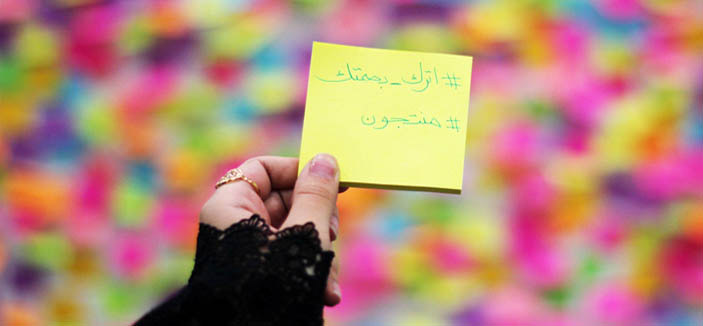 #اترك_بصمتك
#منتجون